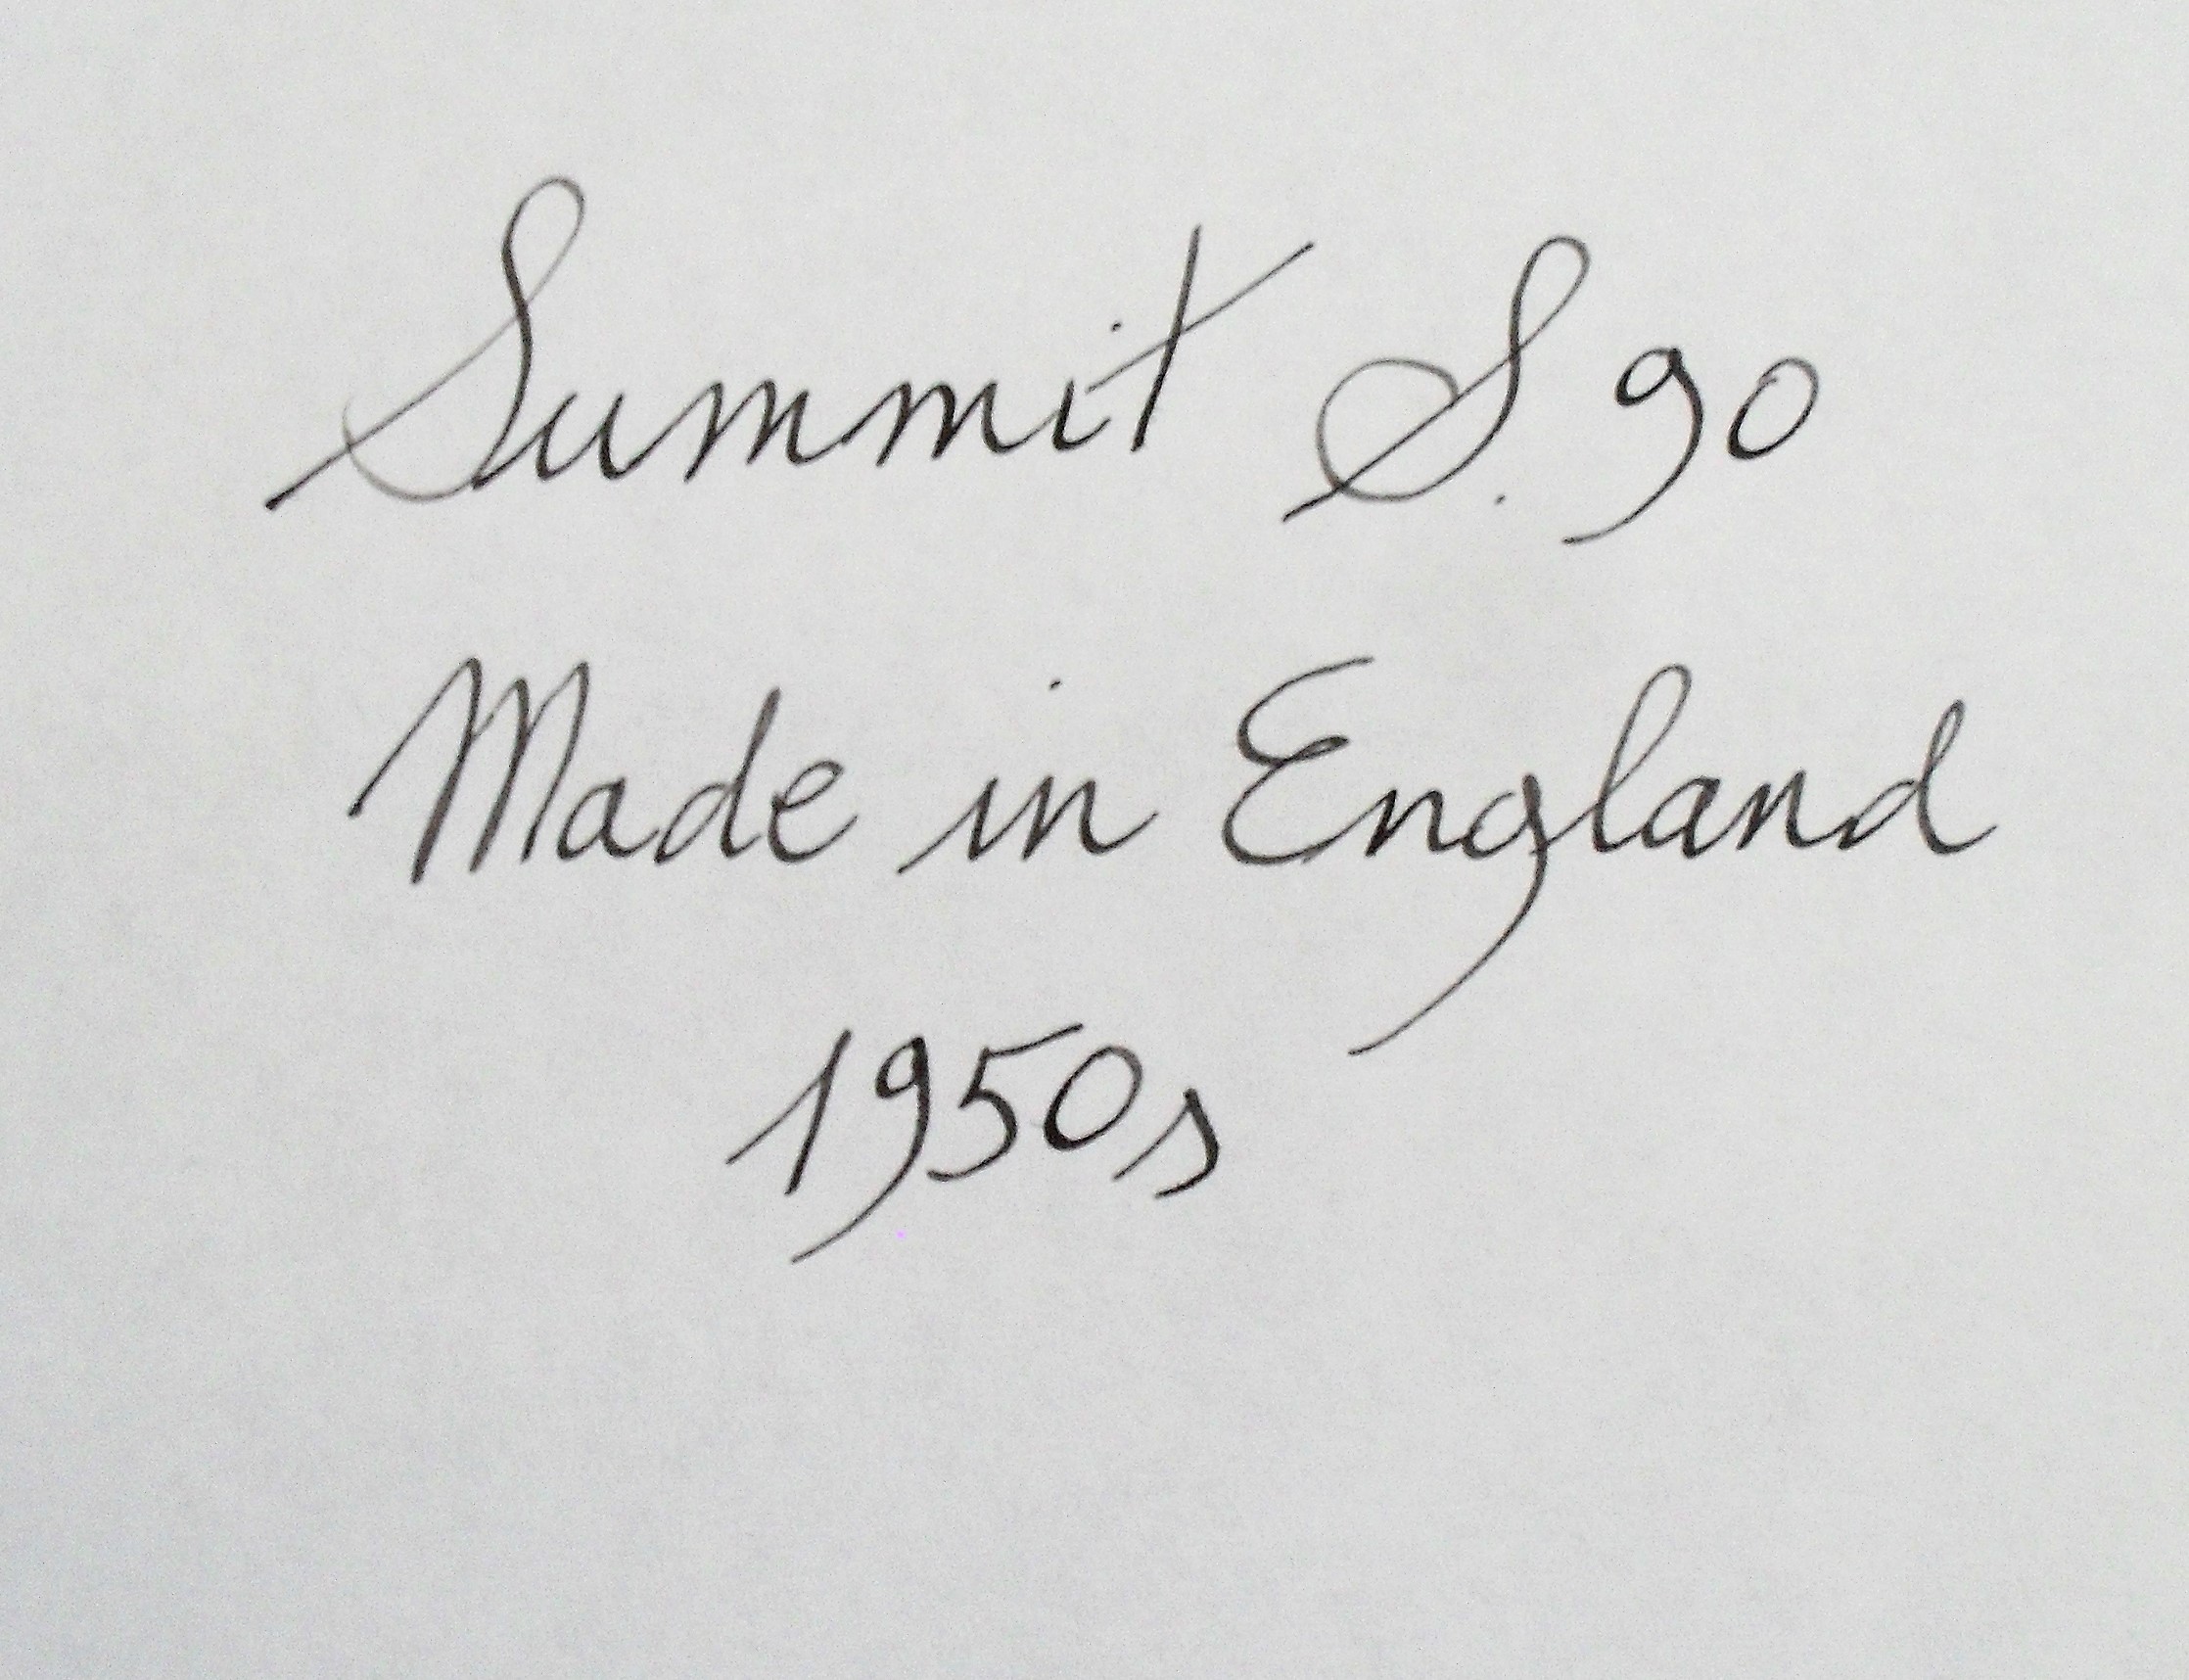 Summit S.90
Made in England
1950s